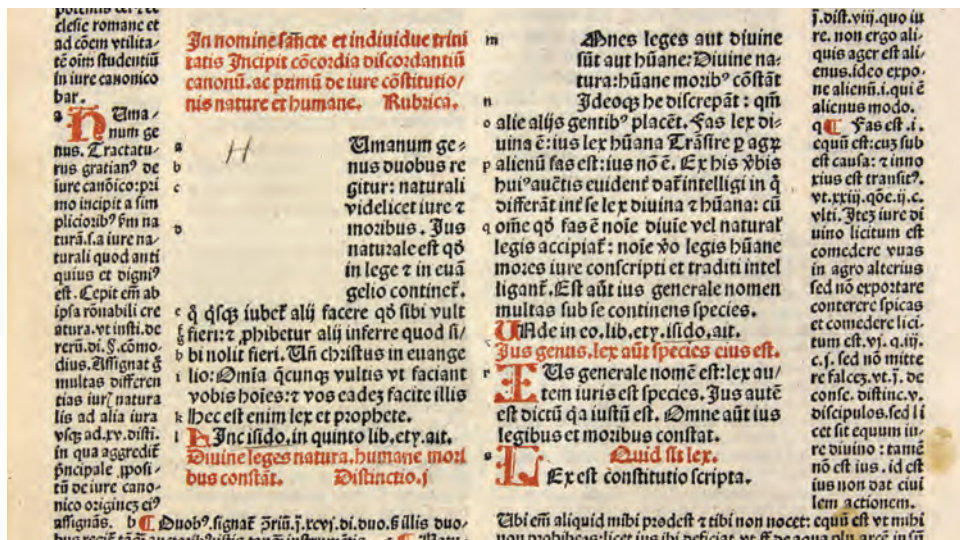 clesie romane et
ad cõem vtilita⸗
tẽ oim̃ studentiũ
in iure canonico
bar.
a HUma⸗
num ge
nus. Tractatu⸗
rus gratianꝰ de
iure canõico:pri
mo incipit a sim
plicioribꝰ
turã.s.a iure na⸗
turali quod anti
quius et digniꝰ
est. Cepit em̃ ab
ipsa rõnabili cre
atura.vt insti.de
rerũ.di.§.cõmo⸗
dius. Assignat
multas differen
tias natura
lis ad alia iura
vsqꝫ ad.xv.disti.
in qua aggredit̃
p̃ncipale ꝓposi⸗
tũ de iure cano⸗
nico origineꝫ eiꝰ
assignãs. b ¶ Duobꝰ.signat̃
In nomine sãncte et indiuidue trini
tatis Incipit cõcordia discordantiũ
canonũ.ac primũ de iure cõstitutio⸗
nis nature et humane. Rubrica.
H
a Umanum ge⸗
b nus duobus re
c gitur: naturali
videlicet iure ⁊
d moribus. Ius
naturale est qð
in lege ⁊ in euã
gelio continet̃.
e q̃ q̃sqꝫ iubet̃ alij facere qð sibi vult
fieri:⁊ ꝓhibetur alij inferre quod si⸗
h bi nolit fieri. Uñ christus in euange
i lio:Omĩa q̃cunqꝫ vultis vt faciant
vobis hoĩes:⁊ vos eadeꝫ facite illis
k Hec est enim lex et prophete.
l HInc isido.in quinto lib.ety.ait.
Diuine leges natura. humane mori
bus constãt. Distinctio.j
m OMnes leges aut diuine
sũt aut hũane:Diuine na⸗
tura:hũane moribꝰ cõstãt
n Ideoqꝫ he discrepãt: qm̃
o alie alijs gentibꝰ placẽt. Fas lex di⸗
uina ẽ:ius lex hũana Trãsire ꝑ agꝝ
p alienũ fas est:ius nõ ẽ. Ex his v̾bis
huiꝰ auctis euident̃ dat̃ intelligi in q̃
differãt int̃ se lex diuina ⁊ hũana: cũ
q om̃e qð fas ẽ noĩe diuĩe vel natural̃
legis accipiat̃: noĩe v̾o legis hũane
mores iure conscripti et traditi intel
ligant̃. Est aũt ius generale nomen
multas sub se continens species.
UNde in eo.lib.ety.isido.ait.
Ius genus.lex aũt species eius est.
r IUs generale nomẽ est:lex au⸗
tem iuris est species. Ius autẽ
est dictũ q̃a iustũ est. Omne aũt ius
legibus et moribus constat.
s Quid sit lex.
LEx est constitutio scripta.
j.dist.viij.quo iu
re. non ergo ali⸗
quis ager est ali⸗
enus.ideo expo⸗
ne alienũ.i.qui ẽ
alienus modo.
q ¶ Fas est .i.
equũ est:cuꝫ sub
est causa: ⁊ inno
xius est transitꝰ.
vt.xxiij.qõe.ij.c.
vlti. Iteꝫ iure di
uino licitum est
comedere vuas
in agro alterius
sed nõ exportare
conterere spicas
et comedere lici⸗
tum est.vj. q.iij.
c.j. sed nõ mitte
re falceꝫ.vt.j. de
conse. distinc.v.
discipulos.sed li
cet sit equum iu⸗
re diuino : tamẽ
nõ est ius .id est
ius non dat ciui
lem actionem.
Ubi em̃ aliquid mihi prodest ⁊ tibi non nocet: equũ est vt mihi